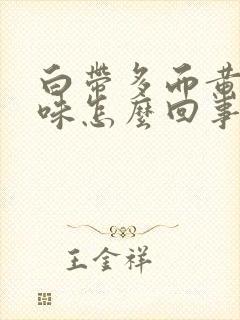 白帶多而黄
味怎麼回事
王金祥